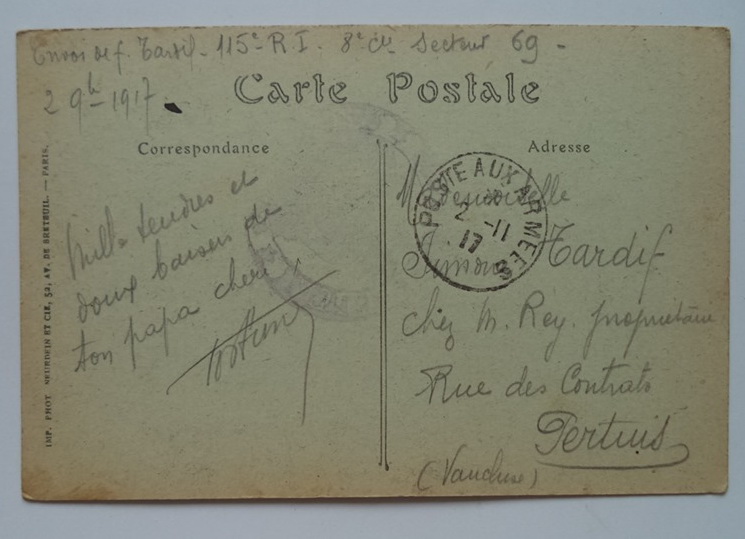 Envoi de f. Tardif - 115e R. I. 8e Cie Secteur 69 -
2 9bre - 1917
Carte Postale
Correspondance
Adresse
Mille tendres et
doux baisers de
ton papa cheri,
Mademoiselle
Simone Tardif
chez M. Rey. propriétaire
Rue des Contrats
Pertuis
(Vaucluse)
POSTE AUX ARMEES
2 -11
17
IMP. PHOT. NEURDEIN ET CIE, 52, AV. DE BRETEUIL. — PARIS.